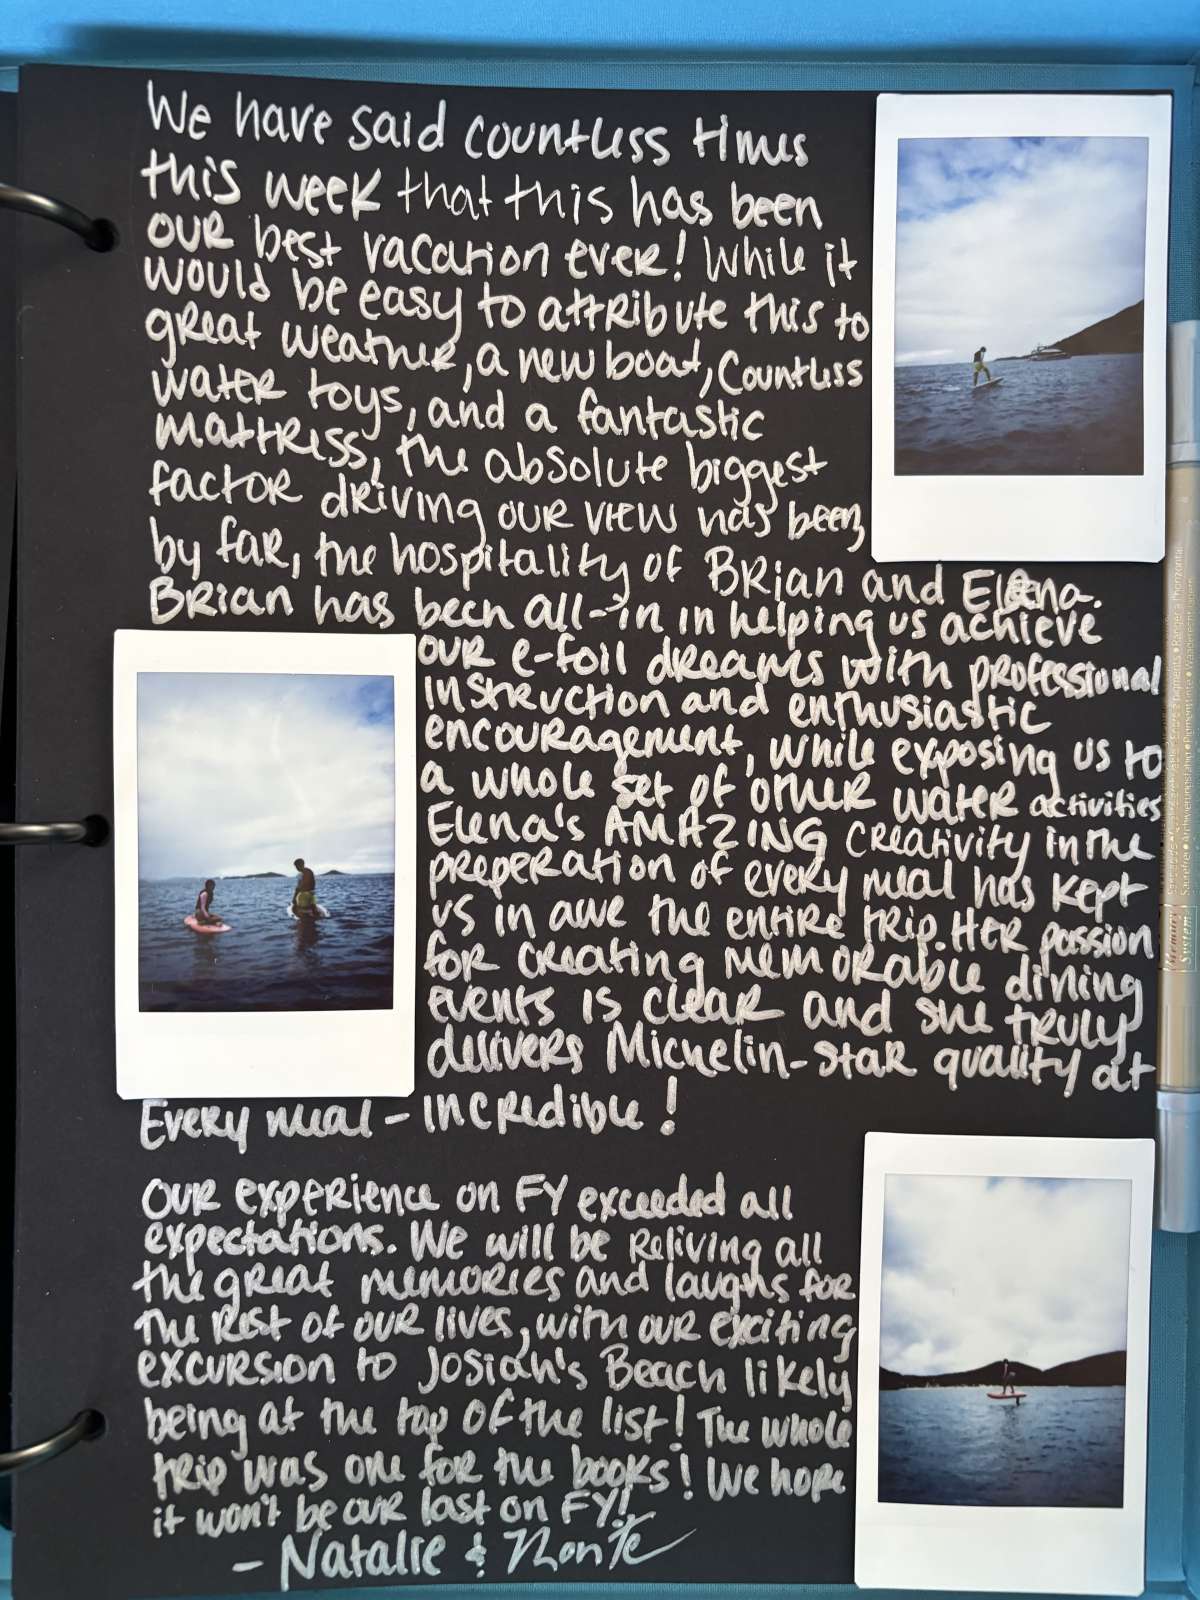 We have said countless times
this week that this has been
our best vacation ever! While it
would be easy to attribute this to
great weather, a new boat, countless
water toys, and a fantastic
mattress, the absolute biggest
factor driving our view has been,
by far, the hospitality of Brian and Elena.
Brian has been all-in in helping us achieve
our e-foil dreams with professional
instruction and enthusiastic
encouragement, while exposing us to
a whole set of other water activities
Elena's AMAZING creativity in the
preperation of every meal has kept
us in awe the entire trip. Her passion
for creating memorable dining
events is clear and she truly
delivers Michelin-star quality at
Every meal - incredible!
Our experience on FY exceeded all
expectations. We will be reliving all
the great memories and laughs for
the rest of our lives, with our exciting
excursion to Josiah's Beach likely
being at the top of the list! The whole
trip was one for the books! We hope
it won't be our last on FY!
- Natalie & Monte